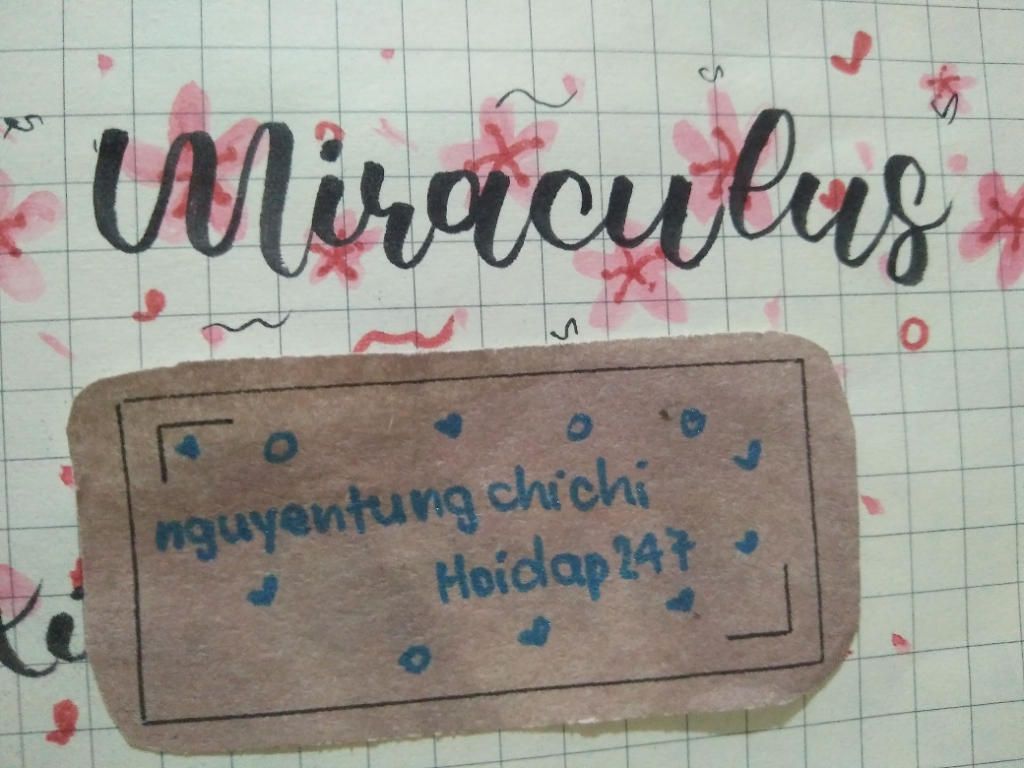 Miraculus
nguyentung chichi
Hoidap247